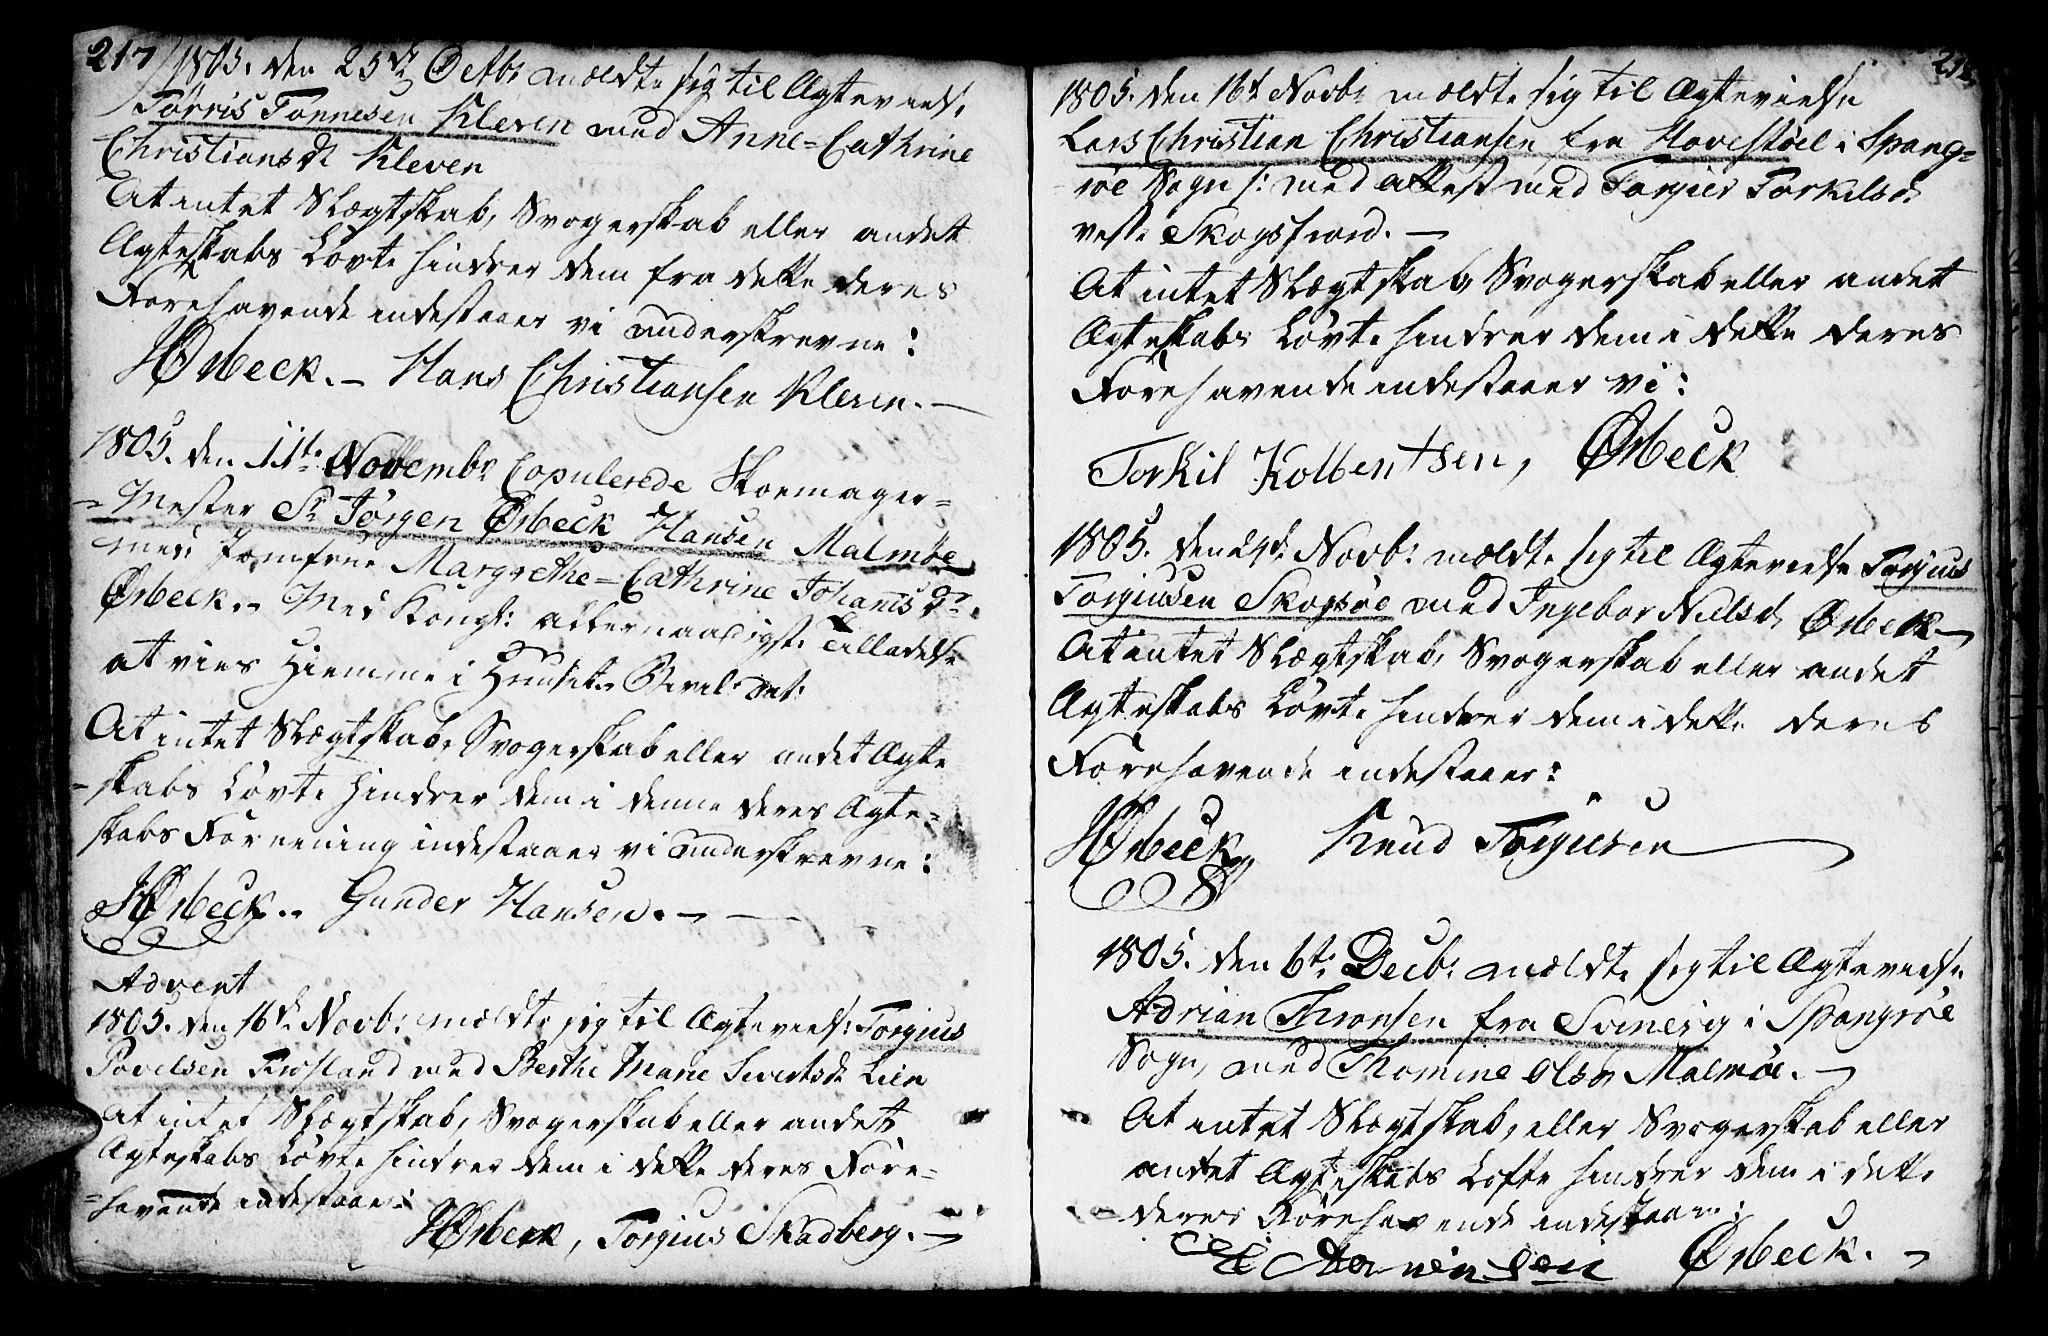 217
1805. den 25de Octbr mældte sig til Ægtevielse
Tørris Tønnesen Kleven med Anne=Cathrine
Christiansdr Kleven
At intet Slægtskab, Svogerskab eller andet
Ægteskabs Løvte hindrer dem fra dette deres
Forehavende indestaaer vi underskrevne:
HØrbeck.— Hans Christiansen Kleven.—
1805. den 11te Novembr Copulerede Skoemager=
=Mester Sr Jørgen Ørbeck Hansen Malmøe
med Jomfrue Margrethe=Cathrine Johanisdr
Ørbeck.. Med Kongl: allernaadigste Tilladelse
at vies hiemme i Huuset
At intet Slægtskab, Svogerskab eller andet Ægte
=skabs Løvte hindrer dem i denne deres Ægte=
skabs Forening indestaaer vi underskrevne:
HØrbeck.. Gunder Hansen.—
Advent
1805. den 16de Novb: mældte sig til Ægtevielse Torgius
Povelsen Frøsland med Berthe Marie Sivertsdr Lien
At intet Slægtskab, Svogerskab eller andet
Ægteskabs Løvte hindrer dem i dette deres Fore=
=havende indestaaer:
HØrbeck, Torgius Skadberg.—
218
1805. den 16de Novb: mældte sig til Ægtevielse
Lars Christian Christiansen fra Hovestøel i Spang=
røe Sogn /: med attest med Torgier Torkilsdr
vestre Skogsfiord.—
At intet Slægtskab, Svogerskab eller andet
Ægteskabs Løvte hindrer dem i dette deres
Forehavende indestaaer vi:
Torkil Kolbentsen, Ørbeck
1805. den 24de Novb: mældte sig til Ægtevielse Torgius
Torgiusen Skogsøe med Ingebor Nielsd. Ørbek—
At intet Slægtskab, Svogerskab eller andet
Ægteskabs Løvte hindrer dem i dette deres
Forehavende indestaaer:
HØrbeck Knud Torgiusen
1805. den 6te Decb: mældte sig til Ægtevielse
Adrian Thronsen fra Svinevig i Spangrøe
Sogn, med Thomine Olsdr Malmøe.—
At intet Slægtskab, eller Svogerskab eller
andet Ægteskabs Lofte hindrer dem i dette
deres Forehavende indestaaer:
Ørbeck.—